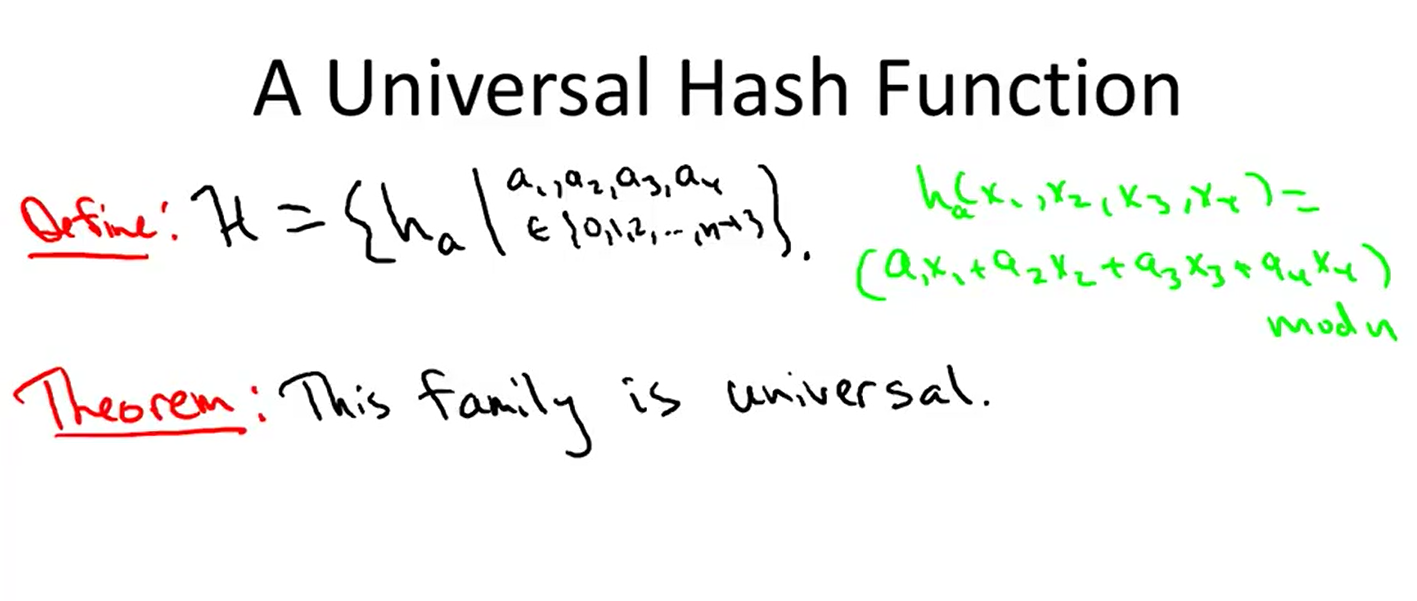 A Universal Hash Function
Define: H = {hₐ | a₁,a₂,a₃,a₄ ∈ {0,1,2,...,n-1}}.
hₐ(x₁,x₂,x₃,x₄) =
(a₁x₁+a₂x₂+a₃x₃+a₄x₄)
mod n
Theorem: This family is universal.